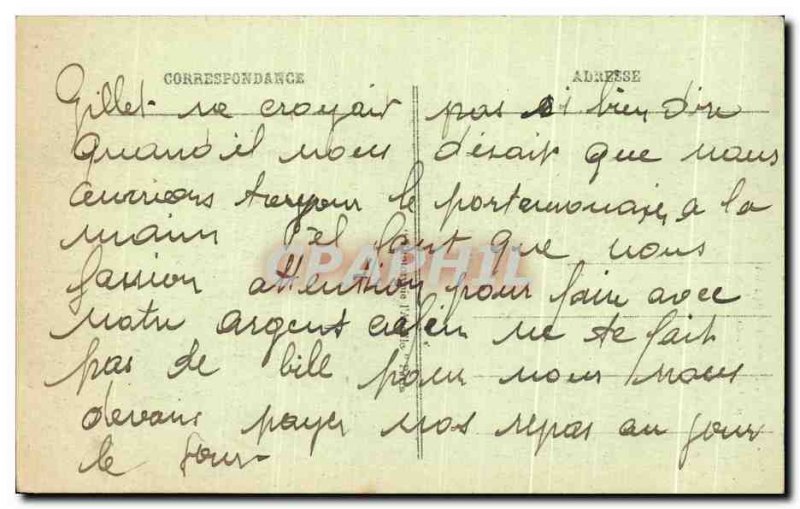 CORRESPONDANCE ADRESSE
Gillet ne croyait pas si bien dire
quand il nous désait que nous
aurrions toujour le portemonaie a la
main il faut que nous
fassion attention pour fair avec
notre argent enfin ne te fait
pas de bille pour nous nous
devons payer nos repas au jour
le jour
CPAPHIL